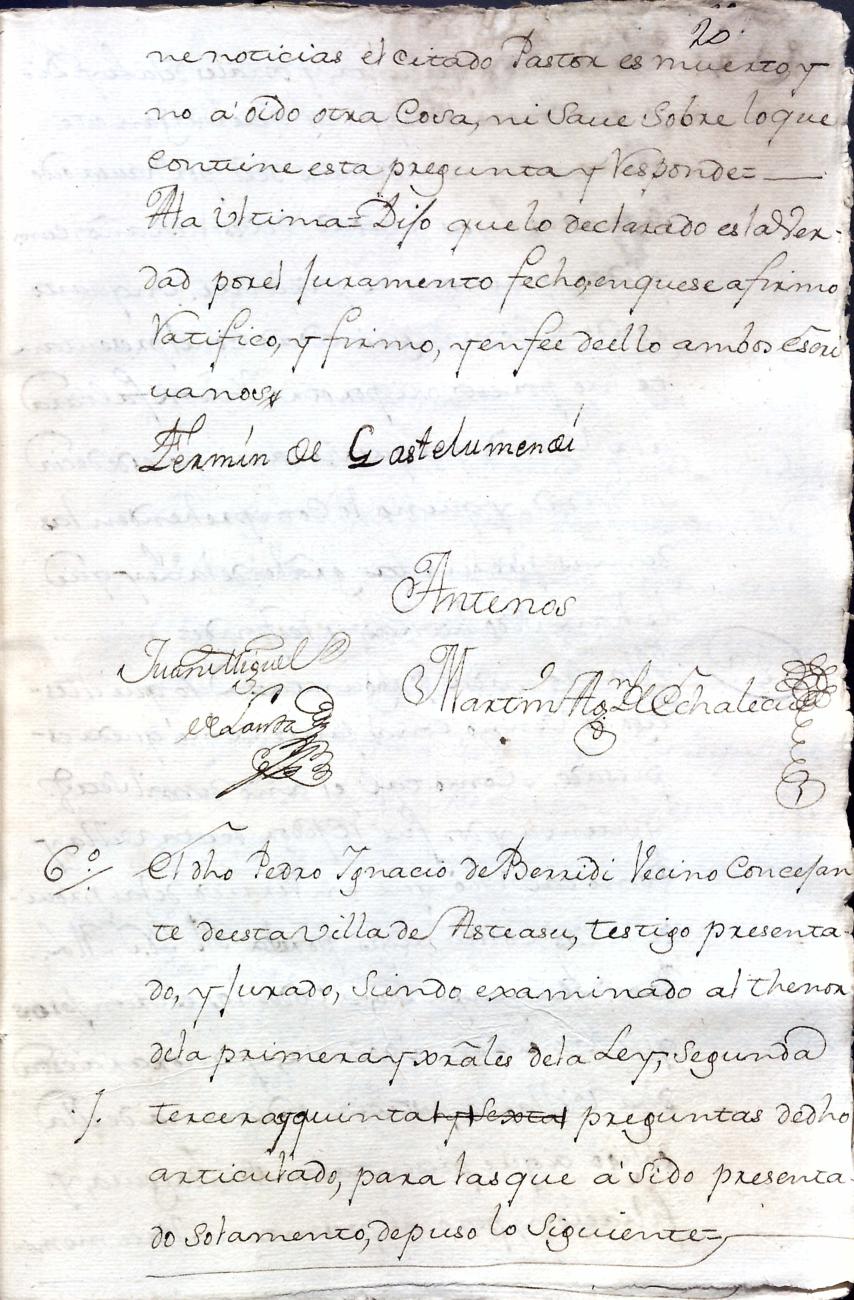 20
ne noticias el citado Pastor es muerto, y
no a' oido otra Cosa, ni Saue Sobre lo que
Contiene esta pregunta y Responde=
A la Vltima= Dijo que lo declarado es la Ver-
dad por el Juramento fecho, en que se afirmo
Ratifico, y firmo, y en fee de ello ambos Escri
uanos
Fermín de Gastelumendi
Antenos
Juan Miguel
de Landa
Martin Ag.n de Echalecu
6º/. El dho Pedro Ignacio de Berridi Vecino Concejan
te de esta Villa de Asteasu, testigo presenta-
do, y Jurado, Siendo examinado al thenor
de la primera y xrales de la Ley, Segunda
./. tercera y quinta y Sexta preguntas de dho
articulado, para las que a' Sido presenta-
do Solamento, depuso lo Siguiente=